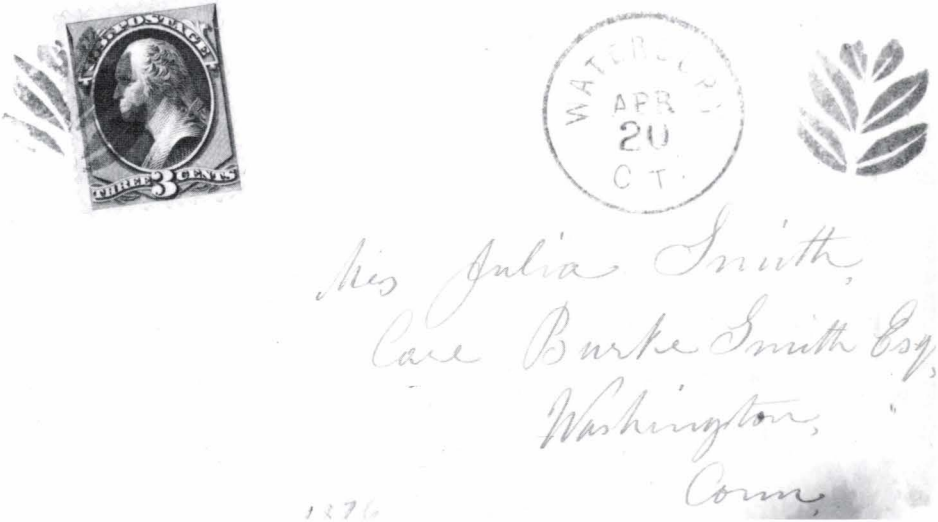 U.S. POSTAGE
THREE 3 CENTS
WATERBURY
APR
20
CT.
Miss Julia Smith,
Care Burke Smith Esq,
Washington,
Conn,
1876